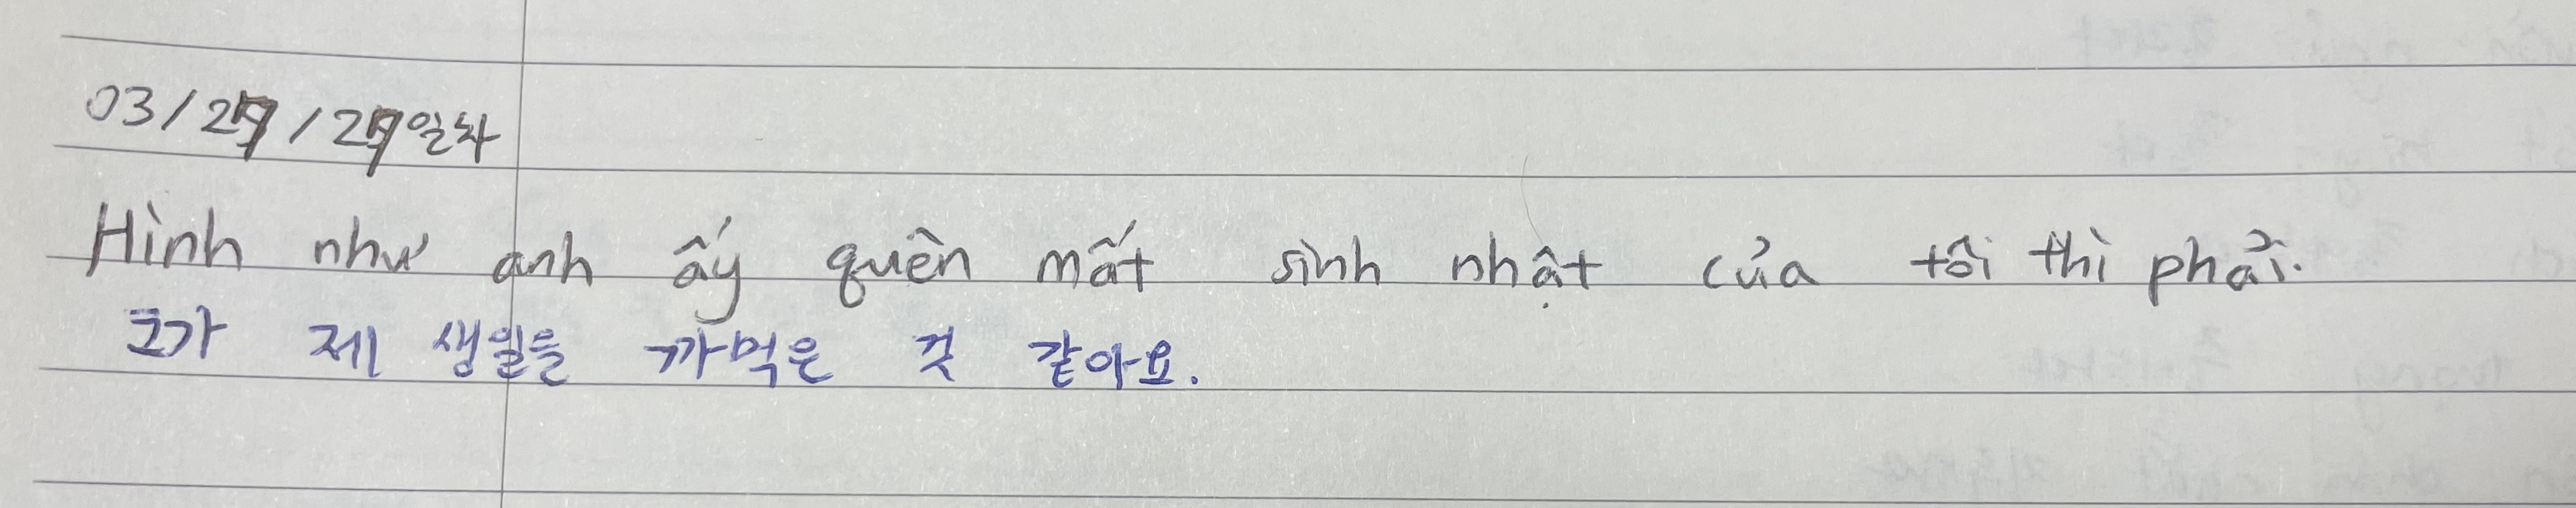 03/27/27일차
Hình như anh ấy quên mất sinh nhật của tôi thì phải.
그가 제 생일을 까먹은 것 같아요.